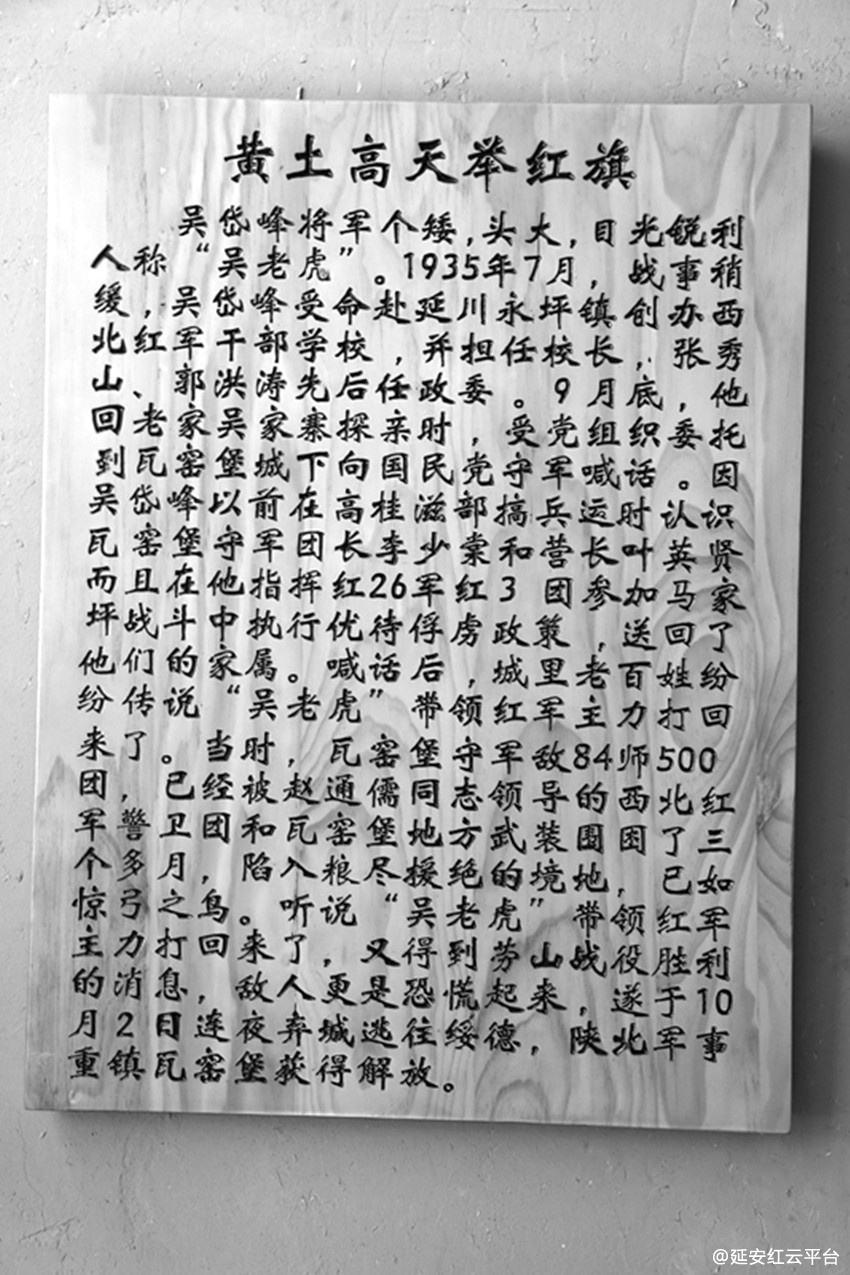 黄土高天举红旗
吴岱峰将军个矮,头大,目光锐利
人称“吴老虎”。1935年7月,战事稍
缓,吴岱峰受命赴延川永坪镇创办西
北红军干部学校,并担任校长,张秀
山、郭洪涛先后任政委。9月底,他
回老家吴家寨探亲时,受党组织委托
到瓦窑堡城下向国民党守军喊话。因
吴岱峰以前在高桂滋部搞兵运时认识
瓦窑堡守军团长李少棠和营长叶英贤
而且在他指挥红26军红3团参加马家
坪战斗中执行优待俘虏政策,送回了
他们的家属。喊话后,城里老百姓纷
纷传说“吴老虎”带领红军主力打回
来了。当时,瓦窑堡守军敌84师500
团,已经被赵通儒同志领导的西北红
军警卫团和瓦窑堡地方武装围困了三
个多月,陷入粮尽援绝的境地,已如
惊弓之鸟。听说“吴老虎”带领红军
主力打回来了,又得到劳山战役胜利
的消息,敌人更是恐慌起来,遂于10
月2日连夜弃城逃往绥德,陕北军事
重镇瓦窑堡获得解放。
@延安红云平台